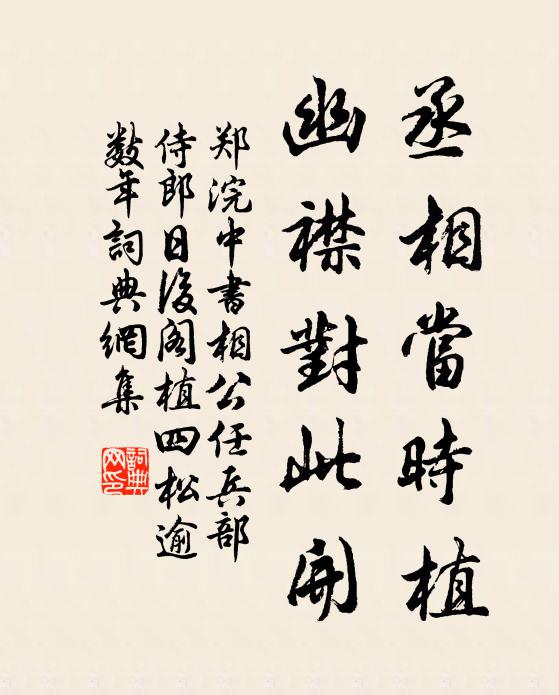 丞相當時植
幽襟對此開
郑浣中書相公任兵部
侍郎日後阁植四松逾
數年詞典網集
詞典网印